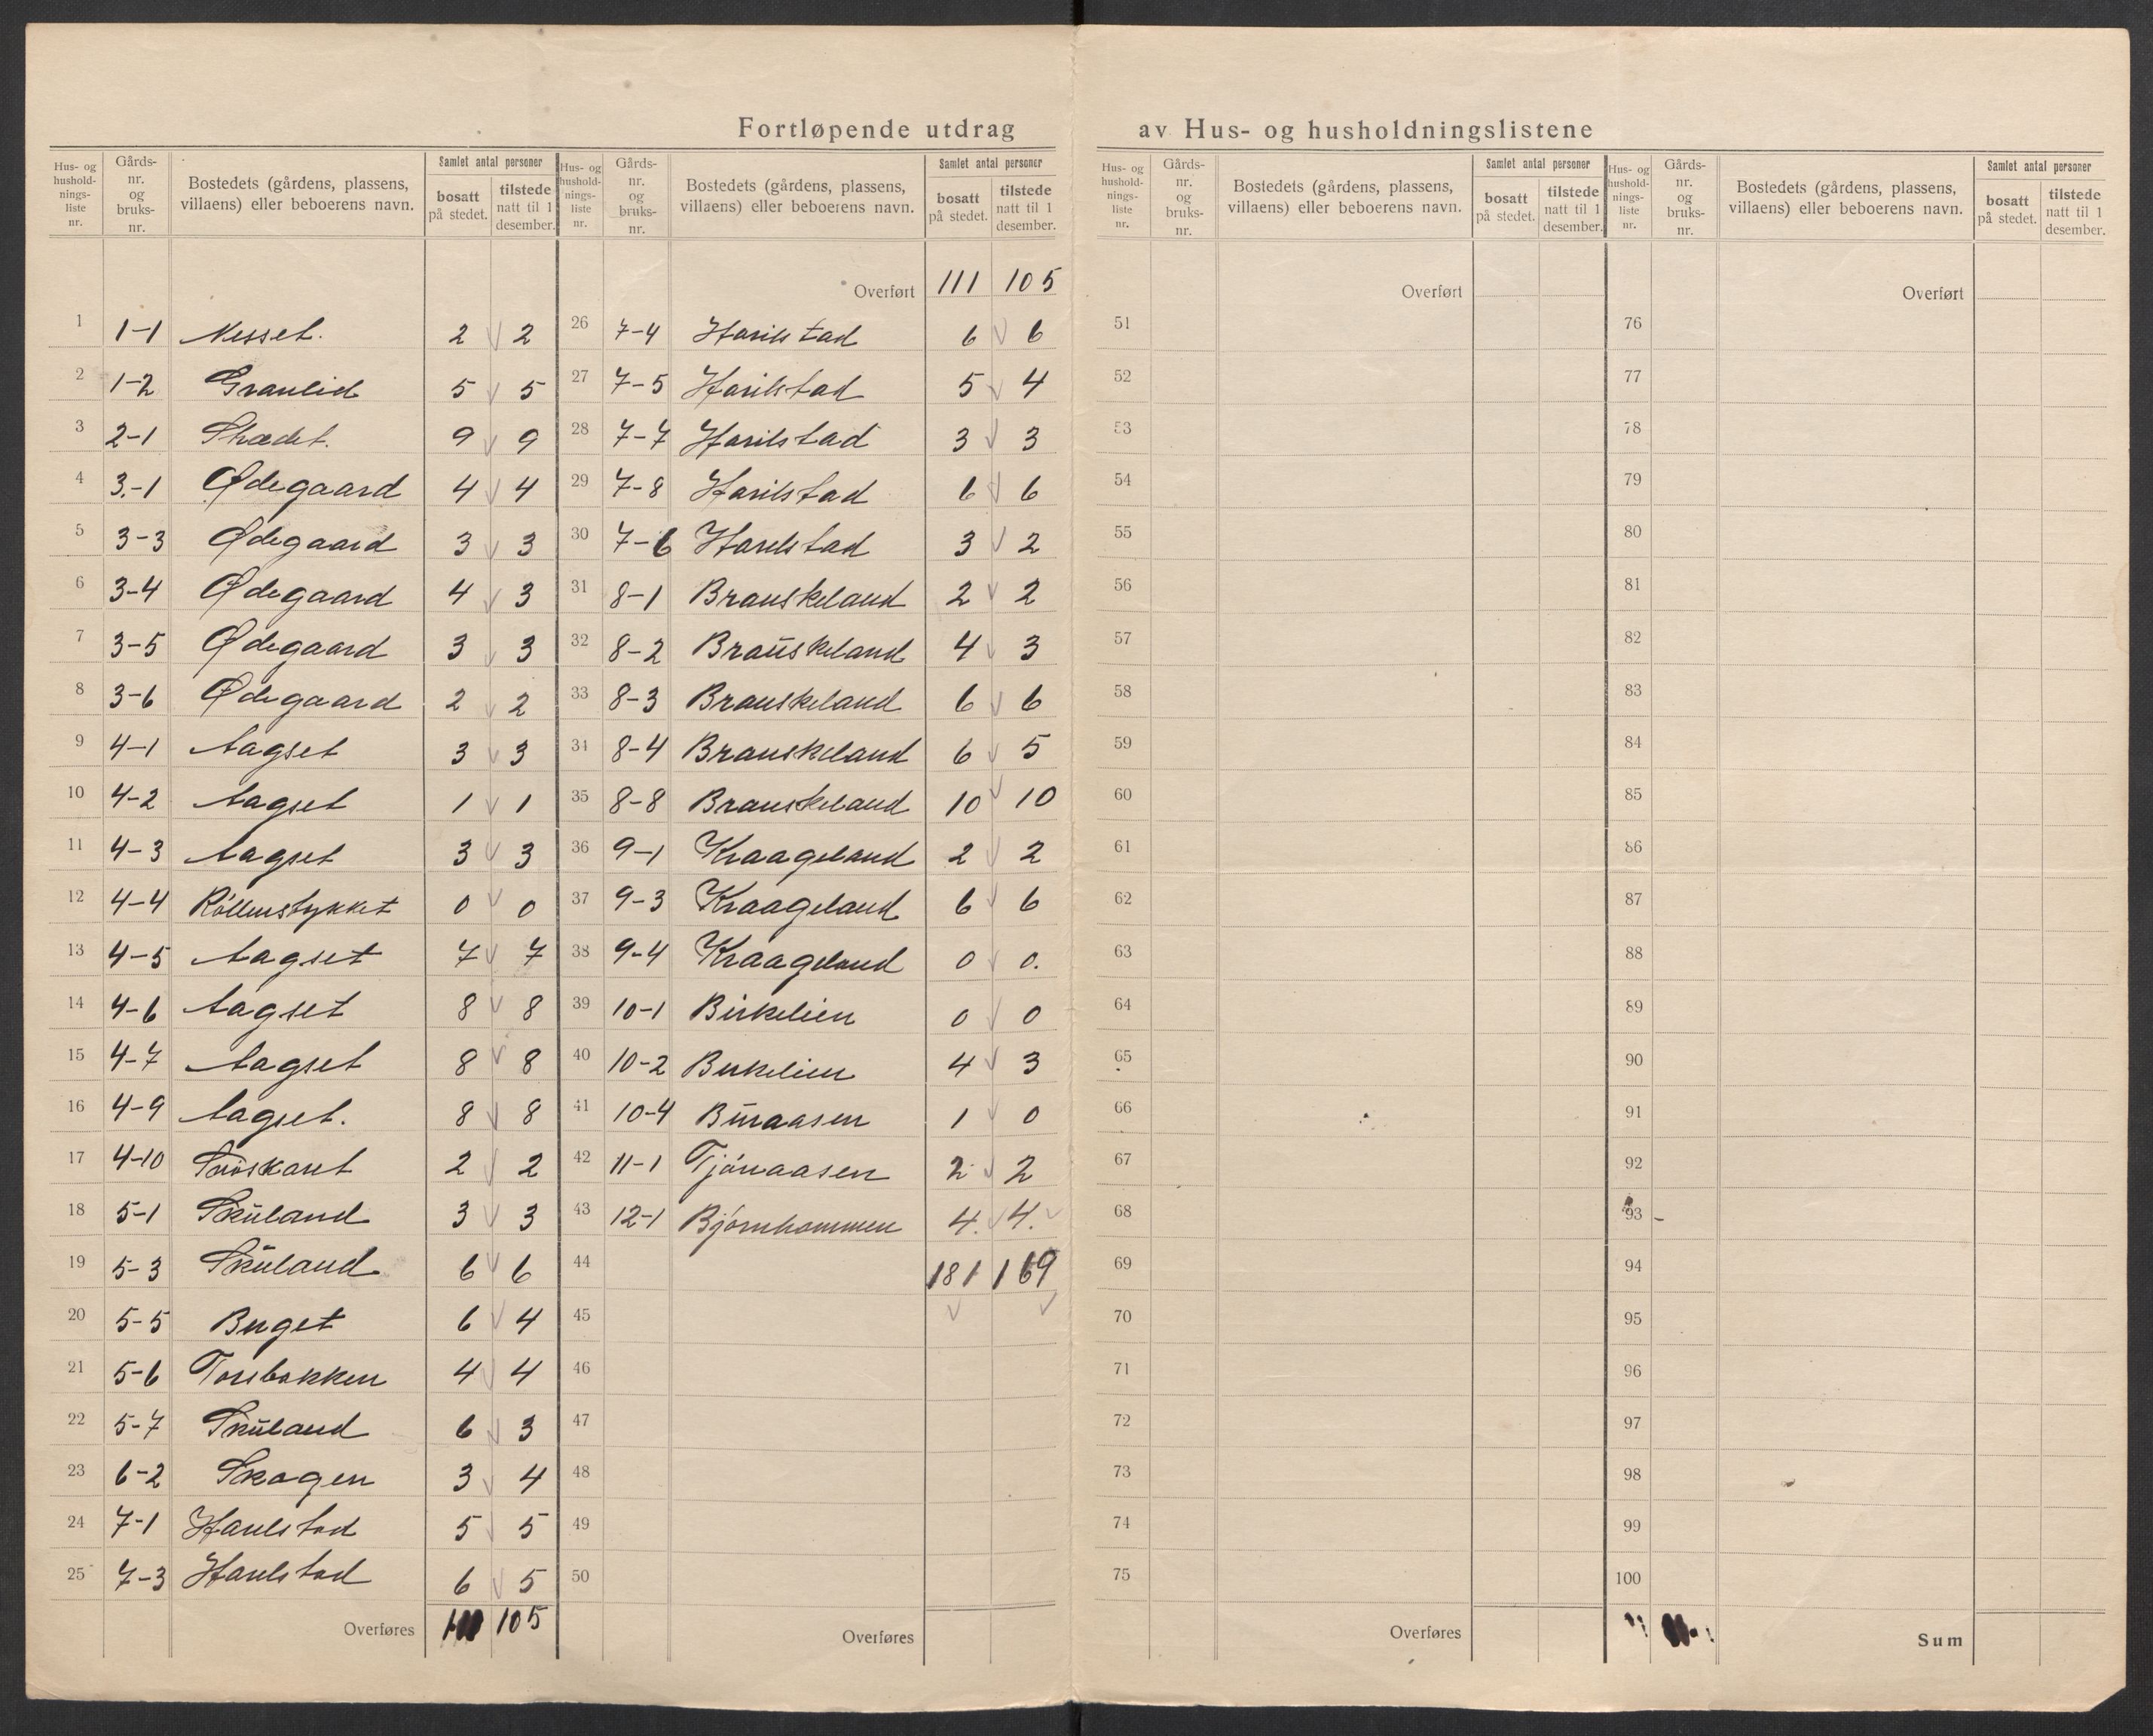 Fortløpende utdrag av Hus- og husholdningslistene
Hus- og husholdningsliste nr. | Gårds-nr. og bruks-nr. | Bostedets (gårdens, plassens, villaens) eller beboerens navn. | Samlet antal personer bosatt på stedet. | tilstede natt til 1 desember.
1 1-1 Nesset. 2 2
2 1-2 Granlid 5 5
3 2-1 9 9
4 3.-1 Ødegaard 4 4
5 3-3 Ødegaard 3 3
6 3-4 Ødegaard 4 3
7 3-5 Ødegaard 3 3
8 3-6 Ødegaard 2 2
9 4-1 Aagset 3 3
10 4-2 Aagset 1 1
11 4-3 Aagset 3 3
12 4-4 0 0
13 4-5 Aagset 7 7
14 4-6 Aagset 8 8
15 4-7 Aagset 8 8
16 4-9 Aagset. 8 8
17 4-10 2 2
18 5-1 Skuland 3 3
19 5-3 Skuland 6 6
20 5-5 6 4
21 5-6 4 4
22 5-7 Skuland 6 3
23 6-2 Skogen 3 4
24 7-1 Harelstad 5 5
25 7-3 Harelstad 6 5
Overføres 111 105
Hus- og husholdningsliste nr. | Gårds-nr. og bruks-nr. | Bostedets (gårdens, plassens, villaens) eller beboerens navn. | Samlet antal personer bosatt på stedet. | tilstede natt til 1 desember.
Overført 111 105
26 7-4 Harilstad 6 6
27 7-5 Harilstad 5 4
28 7-7 Harilstad 3 3
29 7-8 Harilstad 6 6
30 7-6 Harelstad 3 2
31 8-1 Brauskeland 2 2
32 8-2 Braŭskeland 4 3
33 8-3 Brauskeland 6 6
34 8-4 Brauskeland 6 5
35 8-8 Brauskeland 10 10
36 9-1 Kraageland 2 2
37 9-3 Kraageland 6 6
38 9-4 Kraageland 0 0.
39 10-1 Birkelien 0 0
40 10-2 Birkelien 4 3
41 10-4 Buraasen 1 0
42 11-1 Tjónaasen 2 2
43 12-1 Bjórnhommen 4. 4.
44 181 169
45
46
47
48
49
50
Overføres
Hus- og husholdningsliste nr. | Gårds-nr. og bruks-nr. | Bostedets (gårdens, plassens, villaens) eller beboerens navn. | Samlet antal personer bosatt på stedet. | tilstede natt til 1 desember.
Overført
51
52
53
54
55
56
57
58
59
60
61
62
63
64
65
66
67
68
69
70
71
72
73
74
75
Overføres
Hus- og husholdningsliste nr. | Gårds-nr. og bruks-nr. | Bostedets (gårdens, plassens, villaens) eller beboerens navn. | Samlet antal personer bosatt på stedet. | tilstede natt til 1 desember.
Overført
76
77
78
79
80
81
82
83
84
85
86
87
88
89
90
91
92
93
94
95
96
97
98
99
100
Sum